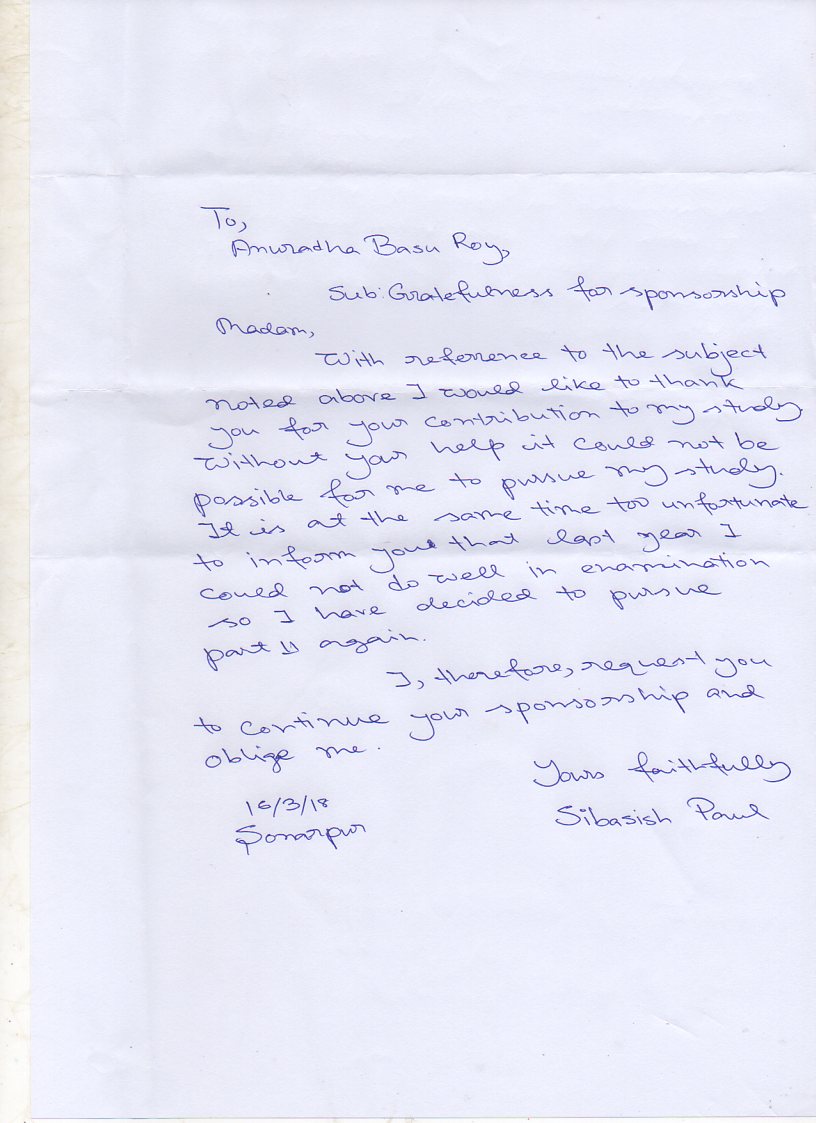 To,
Anuradha Basu Roy,
Sub: Gratefulness for sponsorship
Madam,
With reference to the subject
noted above I would like to thank
you for your contribution to my study.
Without your help it could not be
possible for me to pursue my study.
It is at the same time too unfortunate
to inform you that last year I
could not do well in examination
so I have decided to pursue
part II again.
I, therefore, request you
to continue your sponsorship and
oblige me.
Yours faithfully
16/3/18
Sibasish Paul
Sonarpur